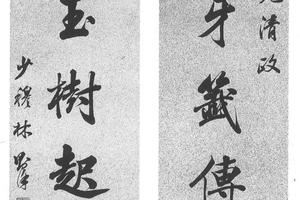 清政
牙籤傳
玉樹起
少穆林則徐